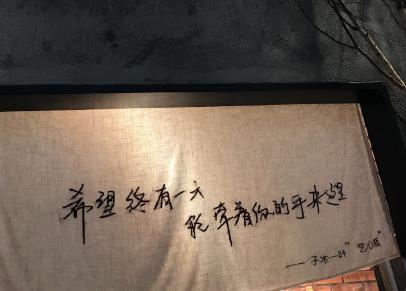 希望终有一天
能牵着你的手来这里
——子木一叶"艺心园"